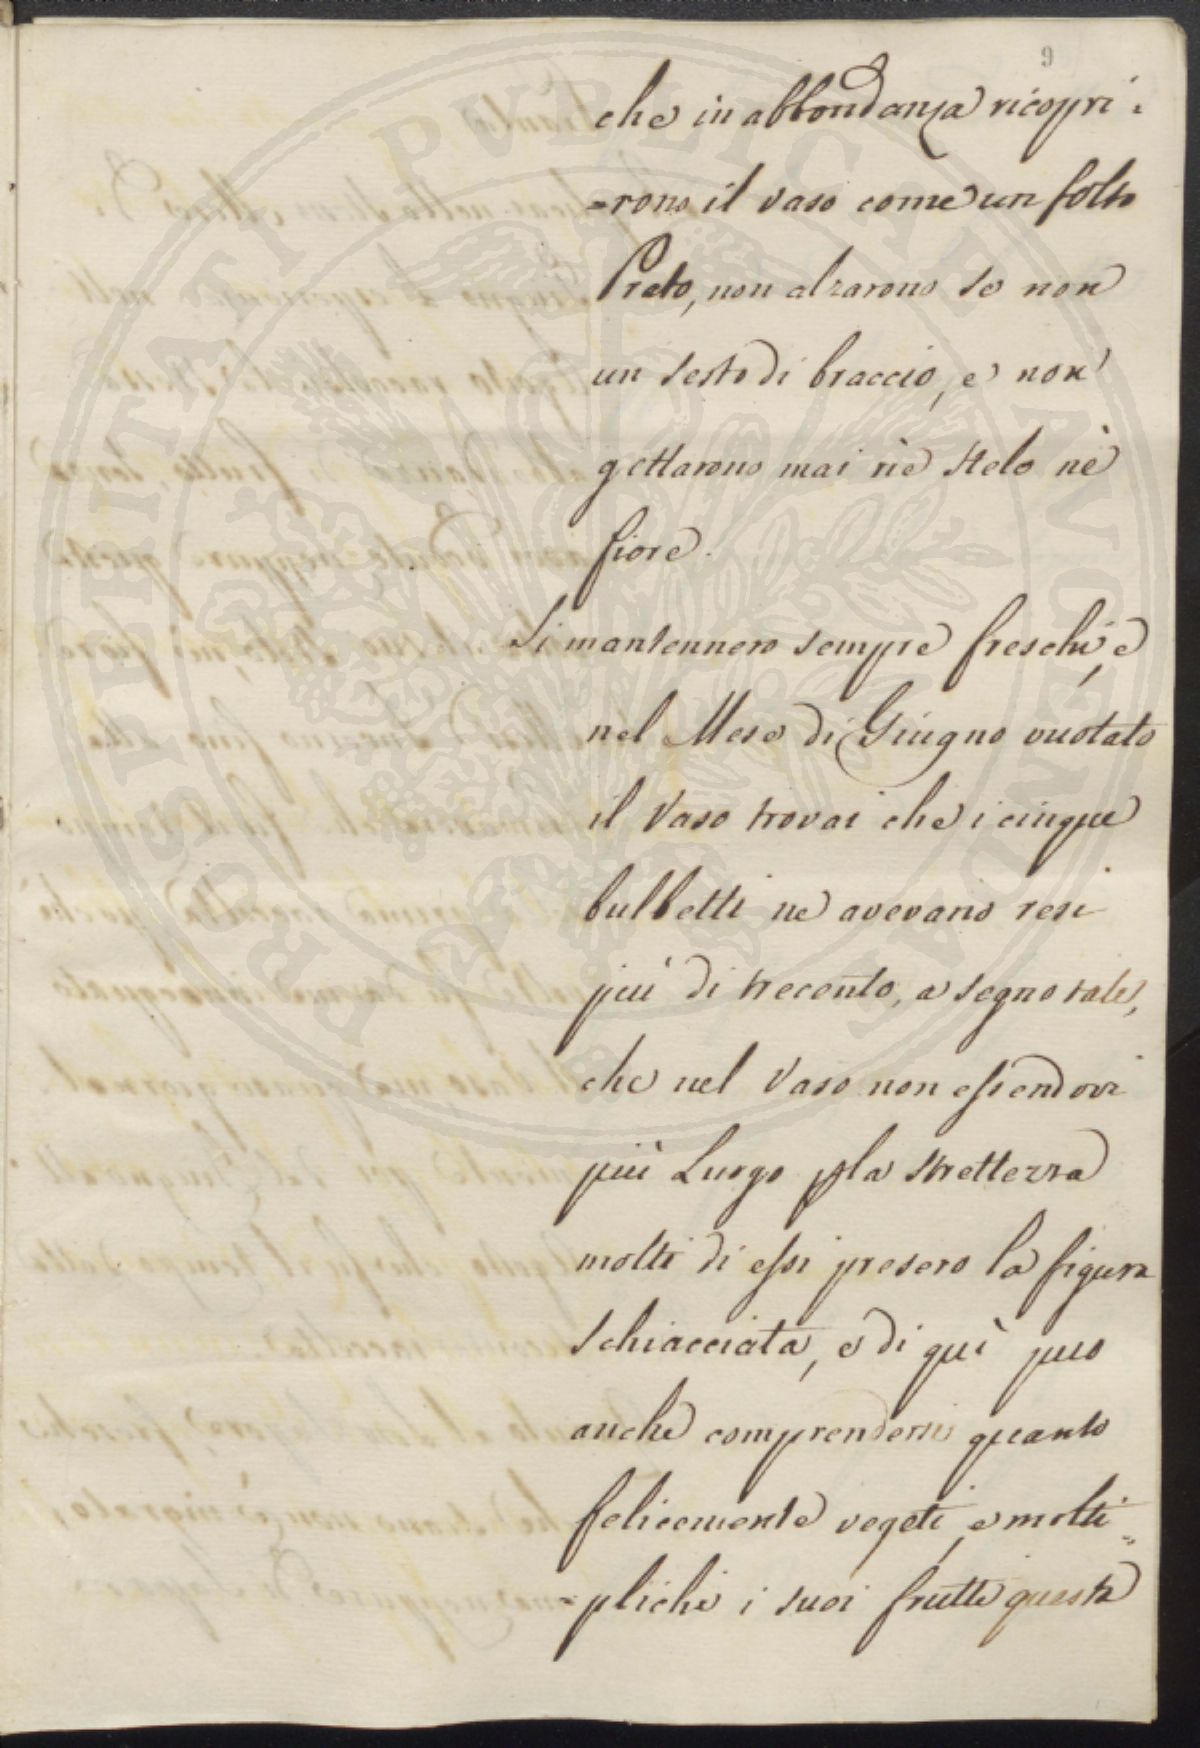 9
che in abbondanza ricopri=
=rono il vaso come un folto
Prato, non alzarono se non
un sesto di braccio, e non
gettarono mai nè stelo nè
fiore.
Si mantennero sempre freschi, e
nel Mese di Giugno vuotato
il Vaso trovai che i cinque
bulbetti ne avevano resi
più di trecento, a segno tale,
che nel Vaso non essendovi
più Luogo p la strettezza
molti di essi presero la figura
schiacciata, e di quì può
anche comprendersi quanto
felicemente vegeti, e molti=
=plichi i suoi frutti questa
PROSPERITATI PUBLICAE AUGENDAE